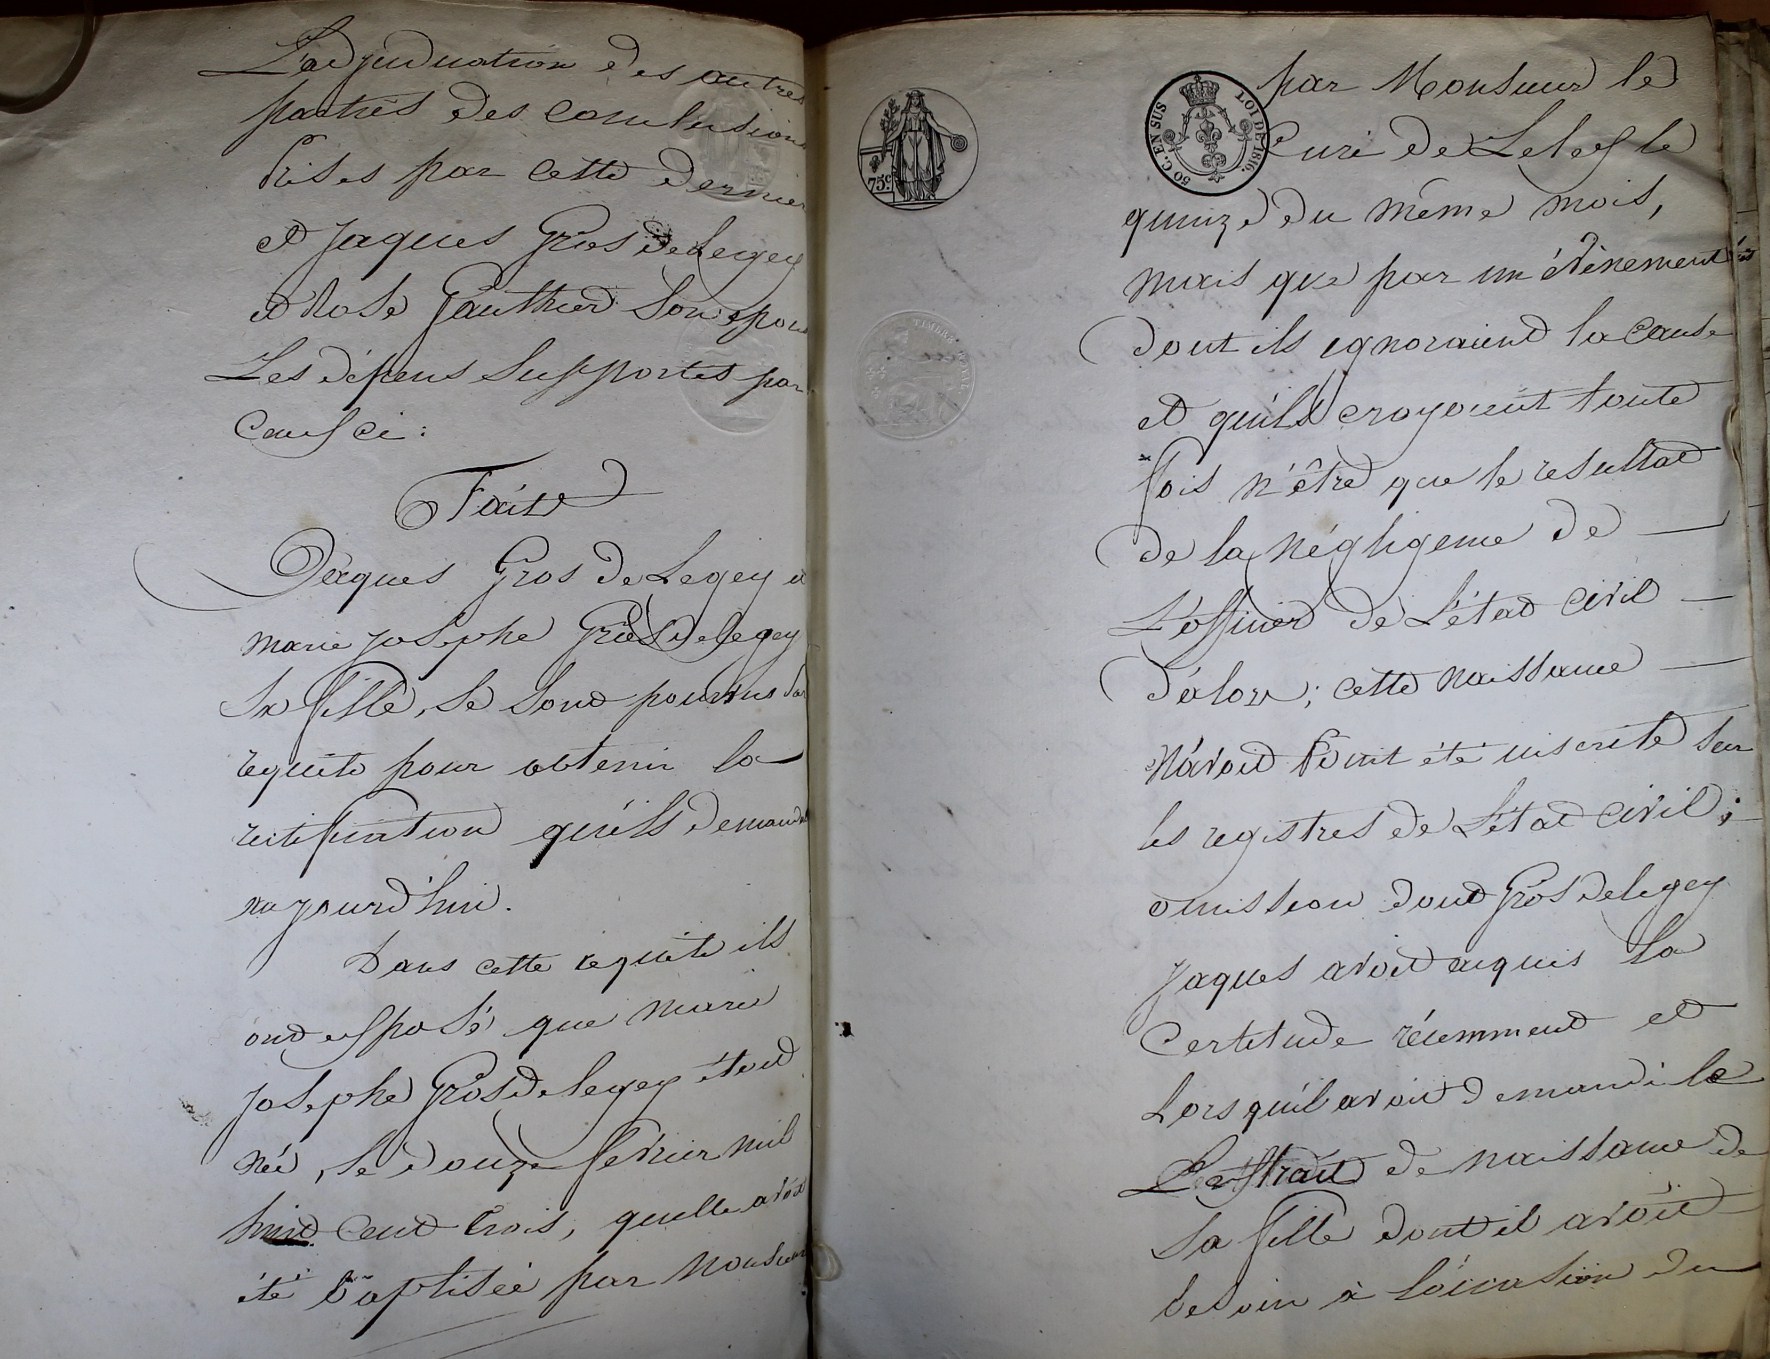 L'adjudication des autres
parties des conclusions
Prises par cette dernier
et Jaques Gros de Legey
et Rose Gauthier Son epou
Les dépens Supportés par
Ceux ci :
Faits
Jacques Gros de Legey et
marie Josephe Gros de legey
Sa fille, Se Sont pourvus par
requête pour obtenir la
rectification qu'ils demande
aujourd'hui.
Dans cette requête ils
ont exposé que marie
Josephe Gros de legey étoit
née, le douze fevrier mil
huit cent trois, quelle avoit
été baptisée par monsieur
75 c.
TIMBRE
50 C. EN SUS
LOI DE 1816.
par Monsieur le
Curé de le
quinze du même mois,
mais que par un évènement
dont ils ignoraient la cause
et qu'ils croyoient toute
fois n'être que le resultat
de la négligence de
L'officier de L'état civil
d'alors ; cette naissance
n'avoit Point été inscrite sur
les registres de L'état civil ;
omission dont Gros de legey
Jaques avoit acquis la
Certitude récemment et
Lorsqu'il avoit demandé le
L'extrait de naissance de
Sa fille dont il avoit
besoin à l'occasion du